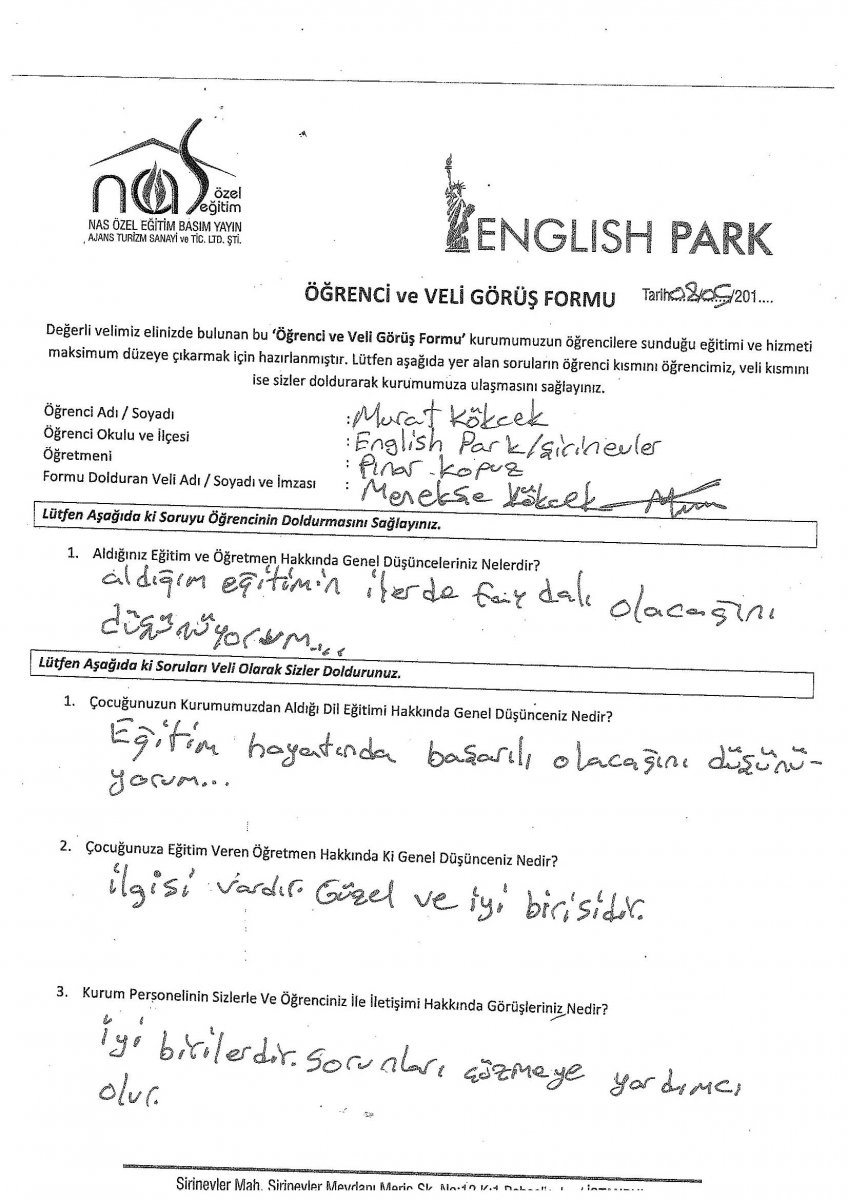 nas özel eğitim
NAS ÖZEL EĞİTİM BASIM YAYIN
AJANS TURİZM SANAYİ ve TİC. LTD. ŞTİ.
ENGLISH PARK
ÖĞRENCİ ve VELİ GÖRÜŞ FORMU Tarih08/05/201....
Değerli velimiz elinizde bulunan bu ‘Öğrenci ve Veli Görüş Formu’ kurumumuzun öğrencilere sunduğu eğitimi ve hizmeti
maksimum düzeye çıkarmak için hazırlanmıştır. Lütfen aşağıda yer alan soruların öğrenci kısmını öğrencimiz, veli kısmını
ise sizler doldurarak kurumumuza ulaşmasını sağlayınız.
Öğrenci Adı / Soyadı : Murat Kökcek
Öğrenci Okulu ve İlçesi : English Park/Şirinevler
Öğretmeni : Pınar Kopuz
Formu Dolduran Veli Adı / Soyadı ve İmzası : Menekşe Kökcek
Lütfen Aşağıda ki Soruyu Öğrencinin Doldurmasını Sağlayınız.
1. Aldığınız Eğitim ve Öğretmen Hakkında Genel Düşünceleriniz Nelerdir?
aldığım eğitimin ilerde faydalı olacağını
düşünüyorum...
Lütfen Aşağıda ki Soruları Veli Olarak Sizler Doldurunuz.
1. Çocuğunuzun Kurumumuzdan Aldığı Dil Eğitimi Hakkında Genel Düşünceniz Nedir?
Eğitim hayatında başarılı olacağını düşünü-
yorum...
2. Çocuğunuza Eğitim Veren Öğretmen Hakkında Ki Genel Düşünceniz Nedir?
ilgisi vardır. Güzel ve iyi birisidir.
3. Kurum Personelinin Sizlerle Ve Öğrenciniz İle İletişimi Hakkında Görüşleriniz Nedir?
İyi birilerdir. Sorunları çözmeye yardımcı
olur.
Şirinevler Mah. Şirinevler Meydanı Meriç Sk. No:12 K:1